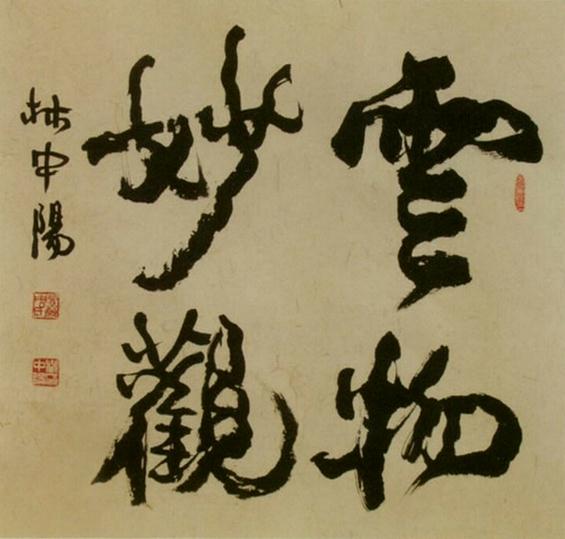 雲物
妙觀
林中陽